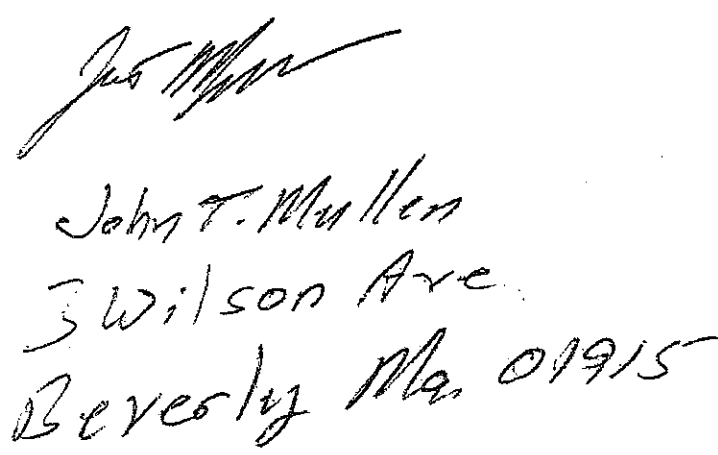 John T. Mullen
3 Wilson Ave.
Beverly Ma. 01915